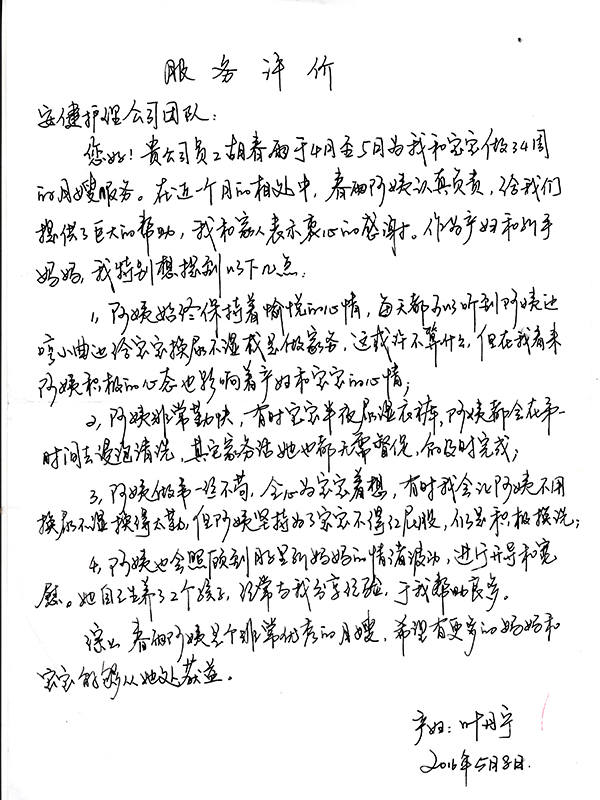 服务评价
安健护理公司团队：
您好！贵公司员工胡春丽于4月至5月为我和宝宝做了4周
的月嫂服务。在近一个月的相处中，春丽阿姨认真负责，给我们
提供了巨大的帮助，我和家人表示衷心的感谢。作为产妇和新手
妈妈，我特别想提到以下几点：
1，阿姨始终保持着愉悦的心情，每天都可以听到阿姨边
哼小曲边给宝宝换尿不湿或是做家务，这或许不算什么，但在我看来
阿姨积极的心态也影响着产妇和宝宝的心情；
2，阿姨非常勤快，有时宝宝半夜尿湿衣裤，阿姨都会在第一
时间去浸泡清洗，其它家务活她也都无需督促，都及时完成；
3，阿姨做事一丝不苟，全心为宝宝着想，有时我会让阿姨不用
换尿不湿换得太勤，但阿姨坚持为了宝宝不得红屁股，仍是积极换洗；
4，阿姨也会照顾到月子里新妈妈的情绪波动，进行开导和宽
慰。她自己生养了2个孩子，经常与我分享经验，于我帮助良多。
综上，春丽阿姨是个非常优秀的月嫂，希望有更多的妈妈和
宝宝能够从她处获益。
产妇：叶丹宁
2016年5月8日.